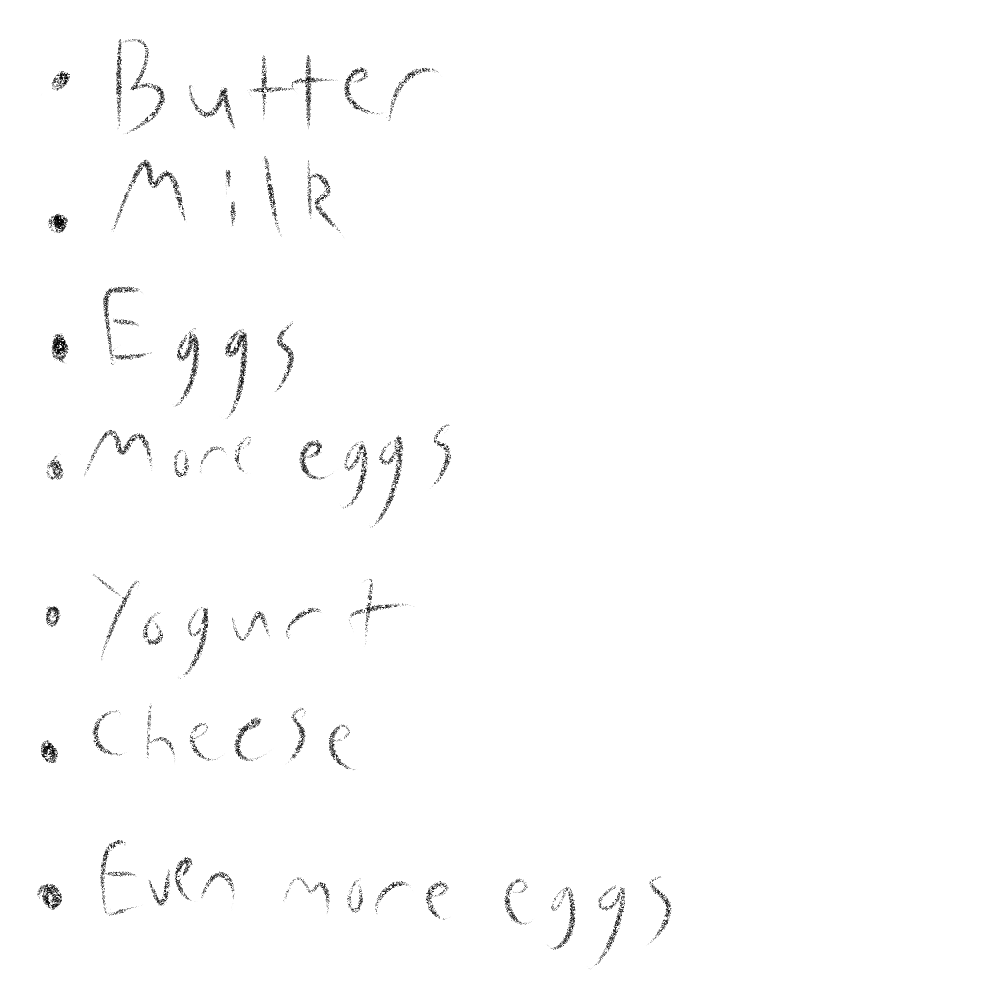 • Butter
• Milk
• Eggs
• More eggs
• Yogurt
• Cheese
• Even more eggs